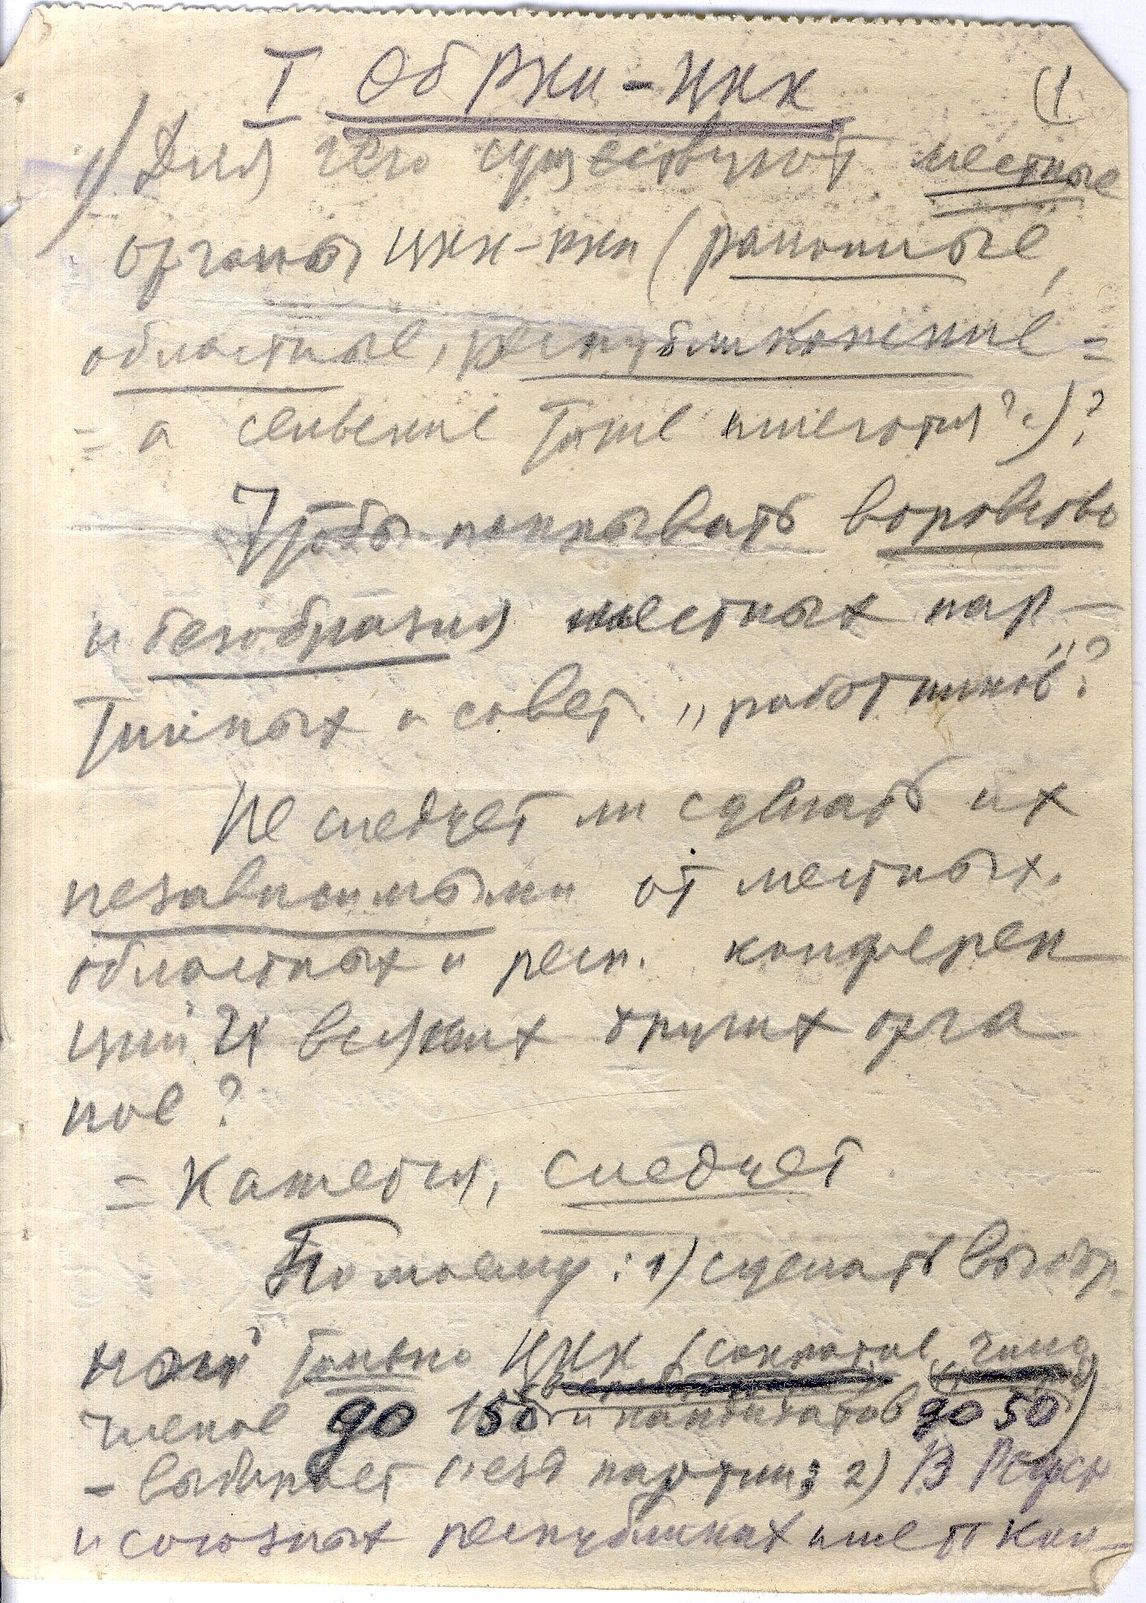 I Об РКИ – ЦКК (1
1) Для чего существуют местные
органы ЦКК-РКИ (районные,
областные, республиканские =
= а сельские тоже имеются?.)?
Чтобы покрывать воровство
и безобразия местных пар-
тийных и совет. „работников"?
Не следует ли сделать их
независимыми от местных,
областных и респ. конферен
ций и всяких других орга
нов?
= Кажется, следует
Помоему: 1) сделать выбор-
ной только ЦКК (сократив число
членов до 150 и кандидатов до 50)
– выбирает съезд партии; 2) В РСФСР
и союзных республиках имеет кан-